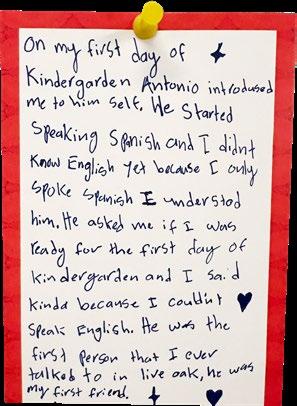 On my first day of
Kindergarden Antonio introdused
me to him self. He Started
Speaking Spanish and I didnt
Know English yet because I only
spoke Spanish I understod
him. He asked me if I was
ready for the first day of
kindergarden and I said
kinda because I couldnt
speak English. He was the
first person that I ever
talked to in live oak, he was
my first friend.